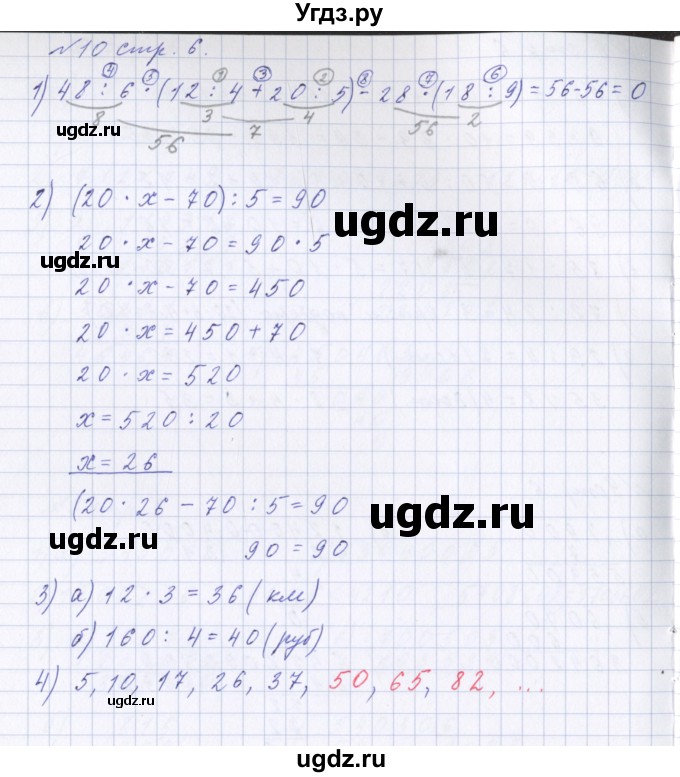 Угдз.ру
№10 стр. 6.
④ ⑤ ① ③ ② ⑧ ⑦ ⑥
1) 48 : 6 · (12 : 4 + 20 : 5) - 28 · (18 : 9) = 56-56 = 0
8 3 4 2
7 56
56
ugdz.ru
2) (20 · x - 70) : 5 = 90
ugdz.ru
20 · x - 70 = 90 · 5
ugdz.ru
20 · x - 70 = 450
20 · x = 450 + 70
20 · x = 520
x = 520 : 20
x = 26
(20 · 26 - 70 : 5 = 90
ugdz.ru
ugdz.ru
90 = 90
3) а) 12 · 3 = 36 ( км)
б) 160 : 4 = 40 (руб)
4) 5, 10, 17, 26, 37, 50, 65, 82, ...
ugdz.ru
ugdz.ru